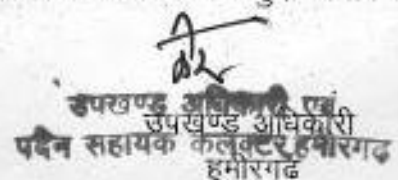 उपखण्ड अधिकारी एवं
उपखण्ड अधिकारी
पदैन सहायक कलेक्टर हमीरगढ
हमीरगढ